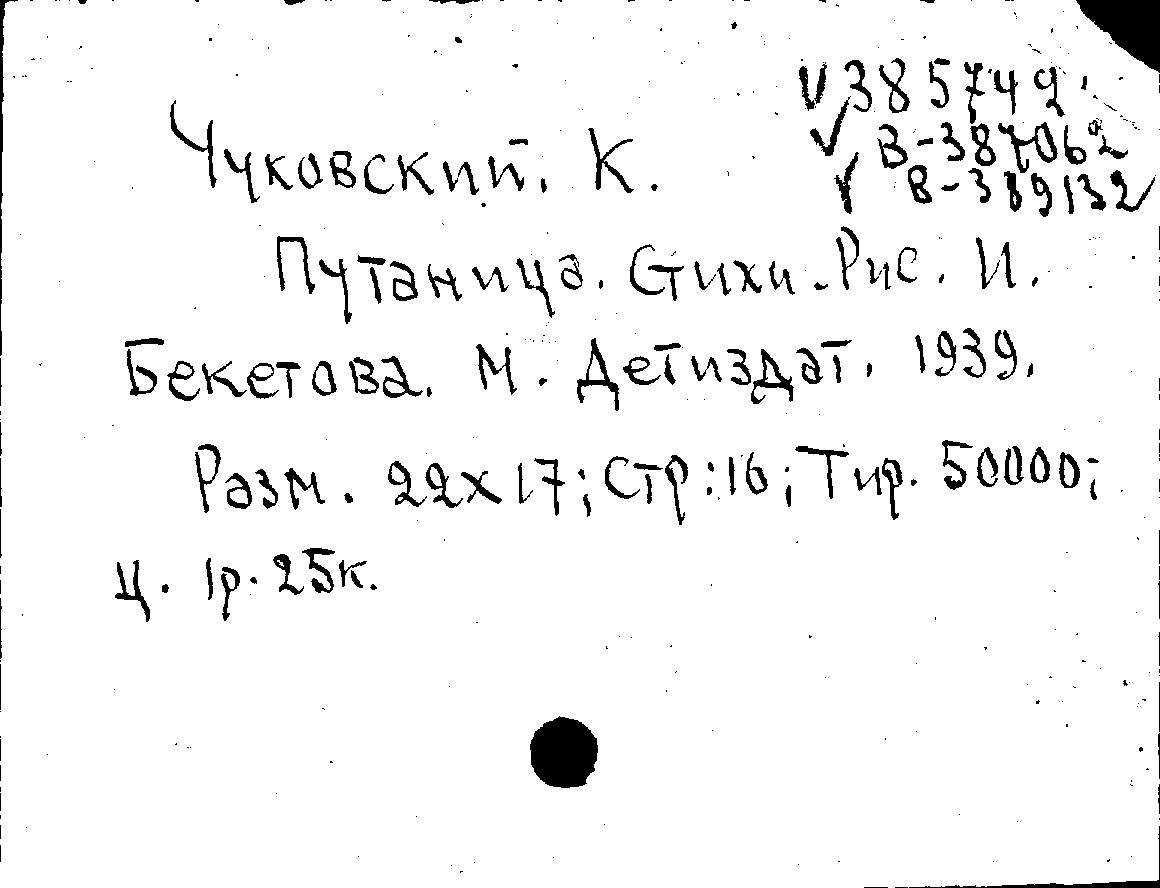 V 385742
✓ В-387062
✓ В-389132
Чуковский. К.
Путаница. Стихи. Рис. И.
Бекетова. М. Детиздат. 1939.
Разм. 22х17; Стр: 16; Тир. 50000;
ц. 1р. 25к.